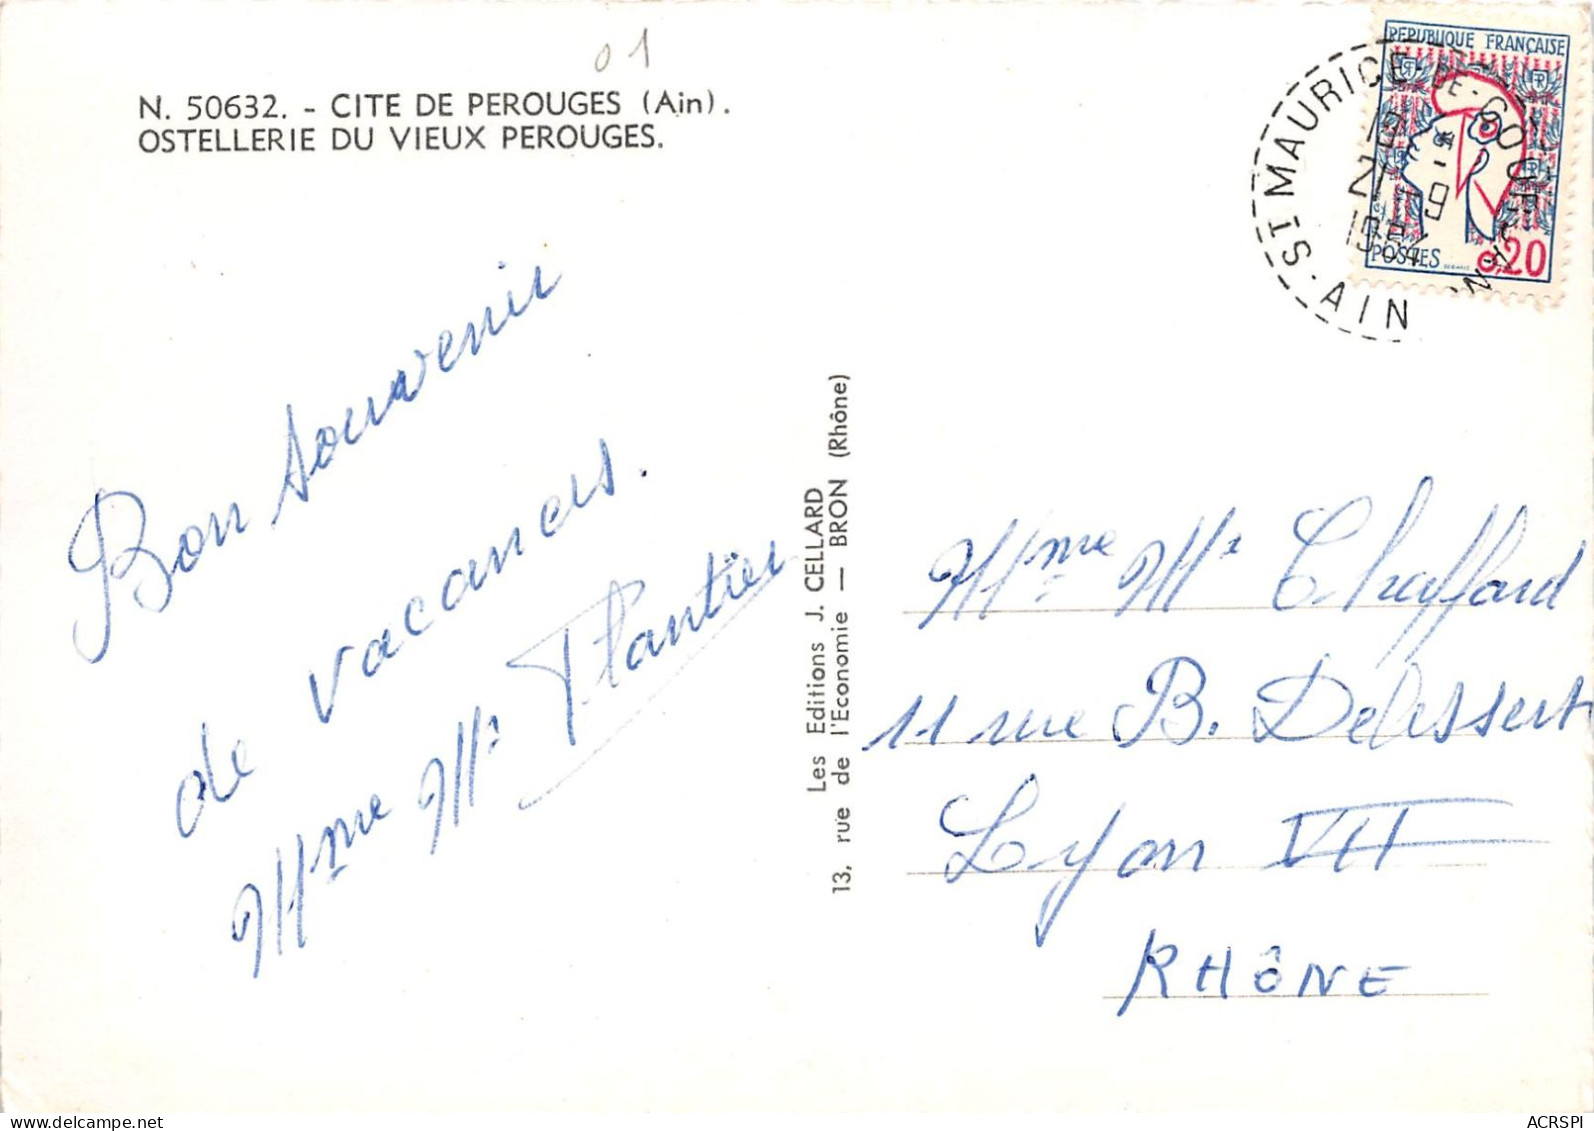 01
N. 50632. - CITE DE PEROUGES (Ain).
OSTELLERIE DU VIEUX PEROUGES.
Bon souvenir
de vacances.
Mme Mr Plantier
Les Editions J. CELLARD
13, rue de l'Economie — BRON (Rhône)
REPUBLIQUE FRANÇAISE
POSTES 0,20
ST MAURICE-DE-GOURDAN.
AIN
21 -9
Mme Mr Chaffard
11 rue B. Delessert
Lyon VII
RHÔNE
ACRSPI